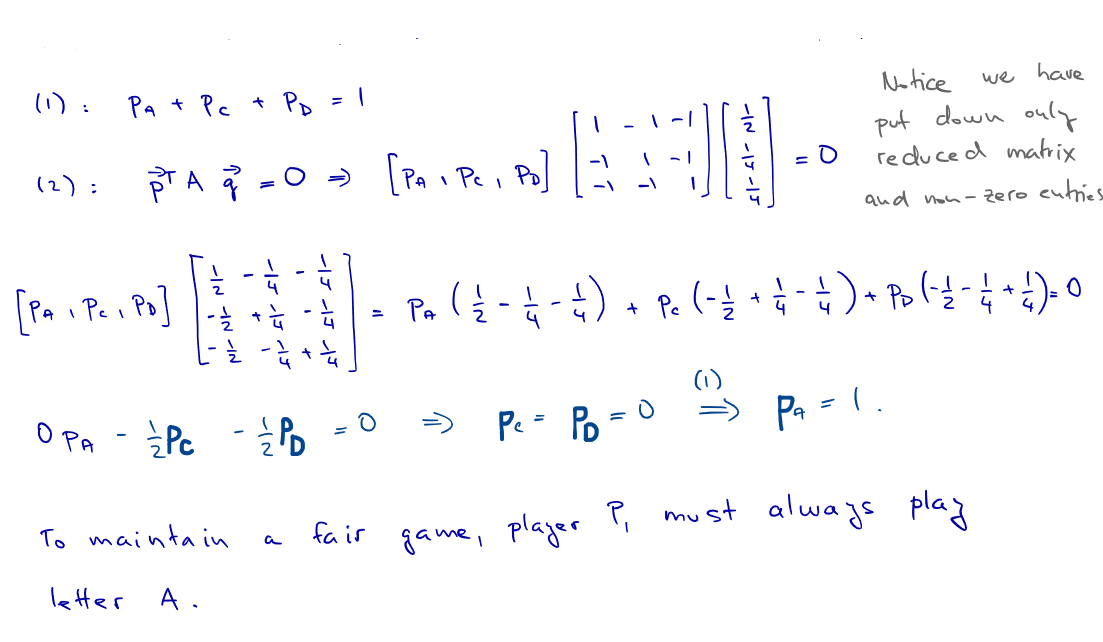 (1) : p_A + p_C + p_D = 1
(2) : p⃗ᵀ A q⃗ = 0 ⇒ [p_A , p_C , p_D] [1 -1 -1; -1 1 -1; -1 -1 1] [1/2; 1/4; 1/4] = 0
Notice we have
put down only
reduced matrix
and non-zero entries
[p_A , p_C , p_D] [1/2 - 1/4 - 1/4; -1/2 + 1/4 - 1/4; -1/2 - 1/4 + 1/4] = p_A (1/2 - 1/4 - 1/4) + p_C (-1/2 + 1/4 - 1/4) + p_D (-1/2 - 1/4 + 1/4) = 0
0 p_A - 1/2 p_C - 1/2 p_D = 0 ⇒ p_C = p_D = 0 (1)⇒ p_A = 1 .
To maintain a fair game, player P₁ must always play
letter A .